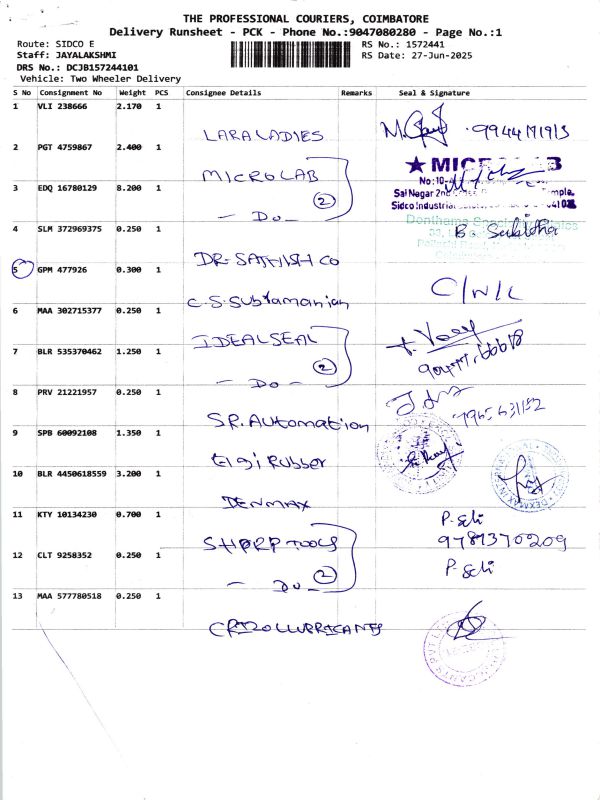 THE PROFESSIONAL COURIERS, COIMBATORE
Delivery Runsheet - PCK - Phone No.:9047080280 - Page No.:1
Route: SIDCO E
RS No.: 1572441
Staff: JAYALAKSHMI
RS Date: 27-Jun-2025
DRS No.: DCJB157244101
Vehicle: Two Wheeler Delivery
S No Consignment No Weight PCS Consignee Details Remarks Seal & Signature
1 VLI 238666 2.170 1 LARA LADIES
2 PGT 4759867 2.400 1 MICROLAB
3 EDQ 16780129 8.200 1 - Do - (2)
4 SLM 372969375 0.250 1 DR. SATHISH CO B. Subidha
5 GPM 477926 0.300 1 C.S. Subramanian C/N/L
6 MAA 302715377 0.250 1 IDEAL SEAL
7 BLR 535370462 1.250 1 - Do - (2)
8 PRV 21221957 0.250 1 S.R. Automation
9 SPB 60092108 1.350 1 Elgi Rubber
10 BLR 4450618559 3.200 1 DENMAX
11 KTY 10134230 0.700 1 SHARP TOOLS P. Seli 9781370209
12 CLT 9258352 0.250 1 - Do - (2) P. Seli
13 MAA 577780518 0.250 1 CRIZO LUBRICANTS